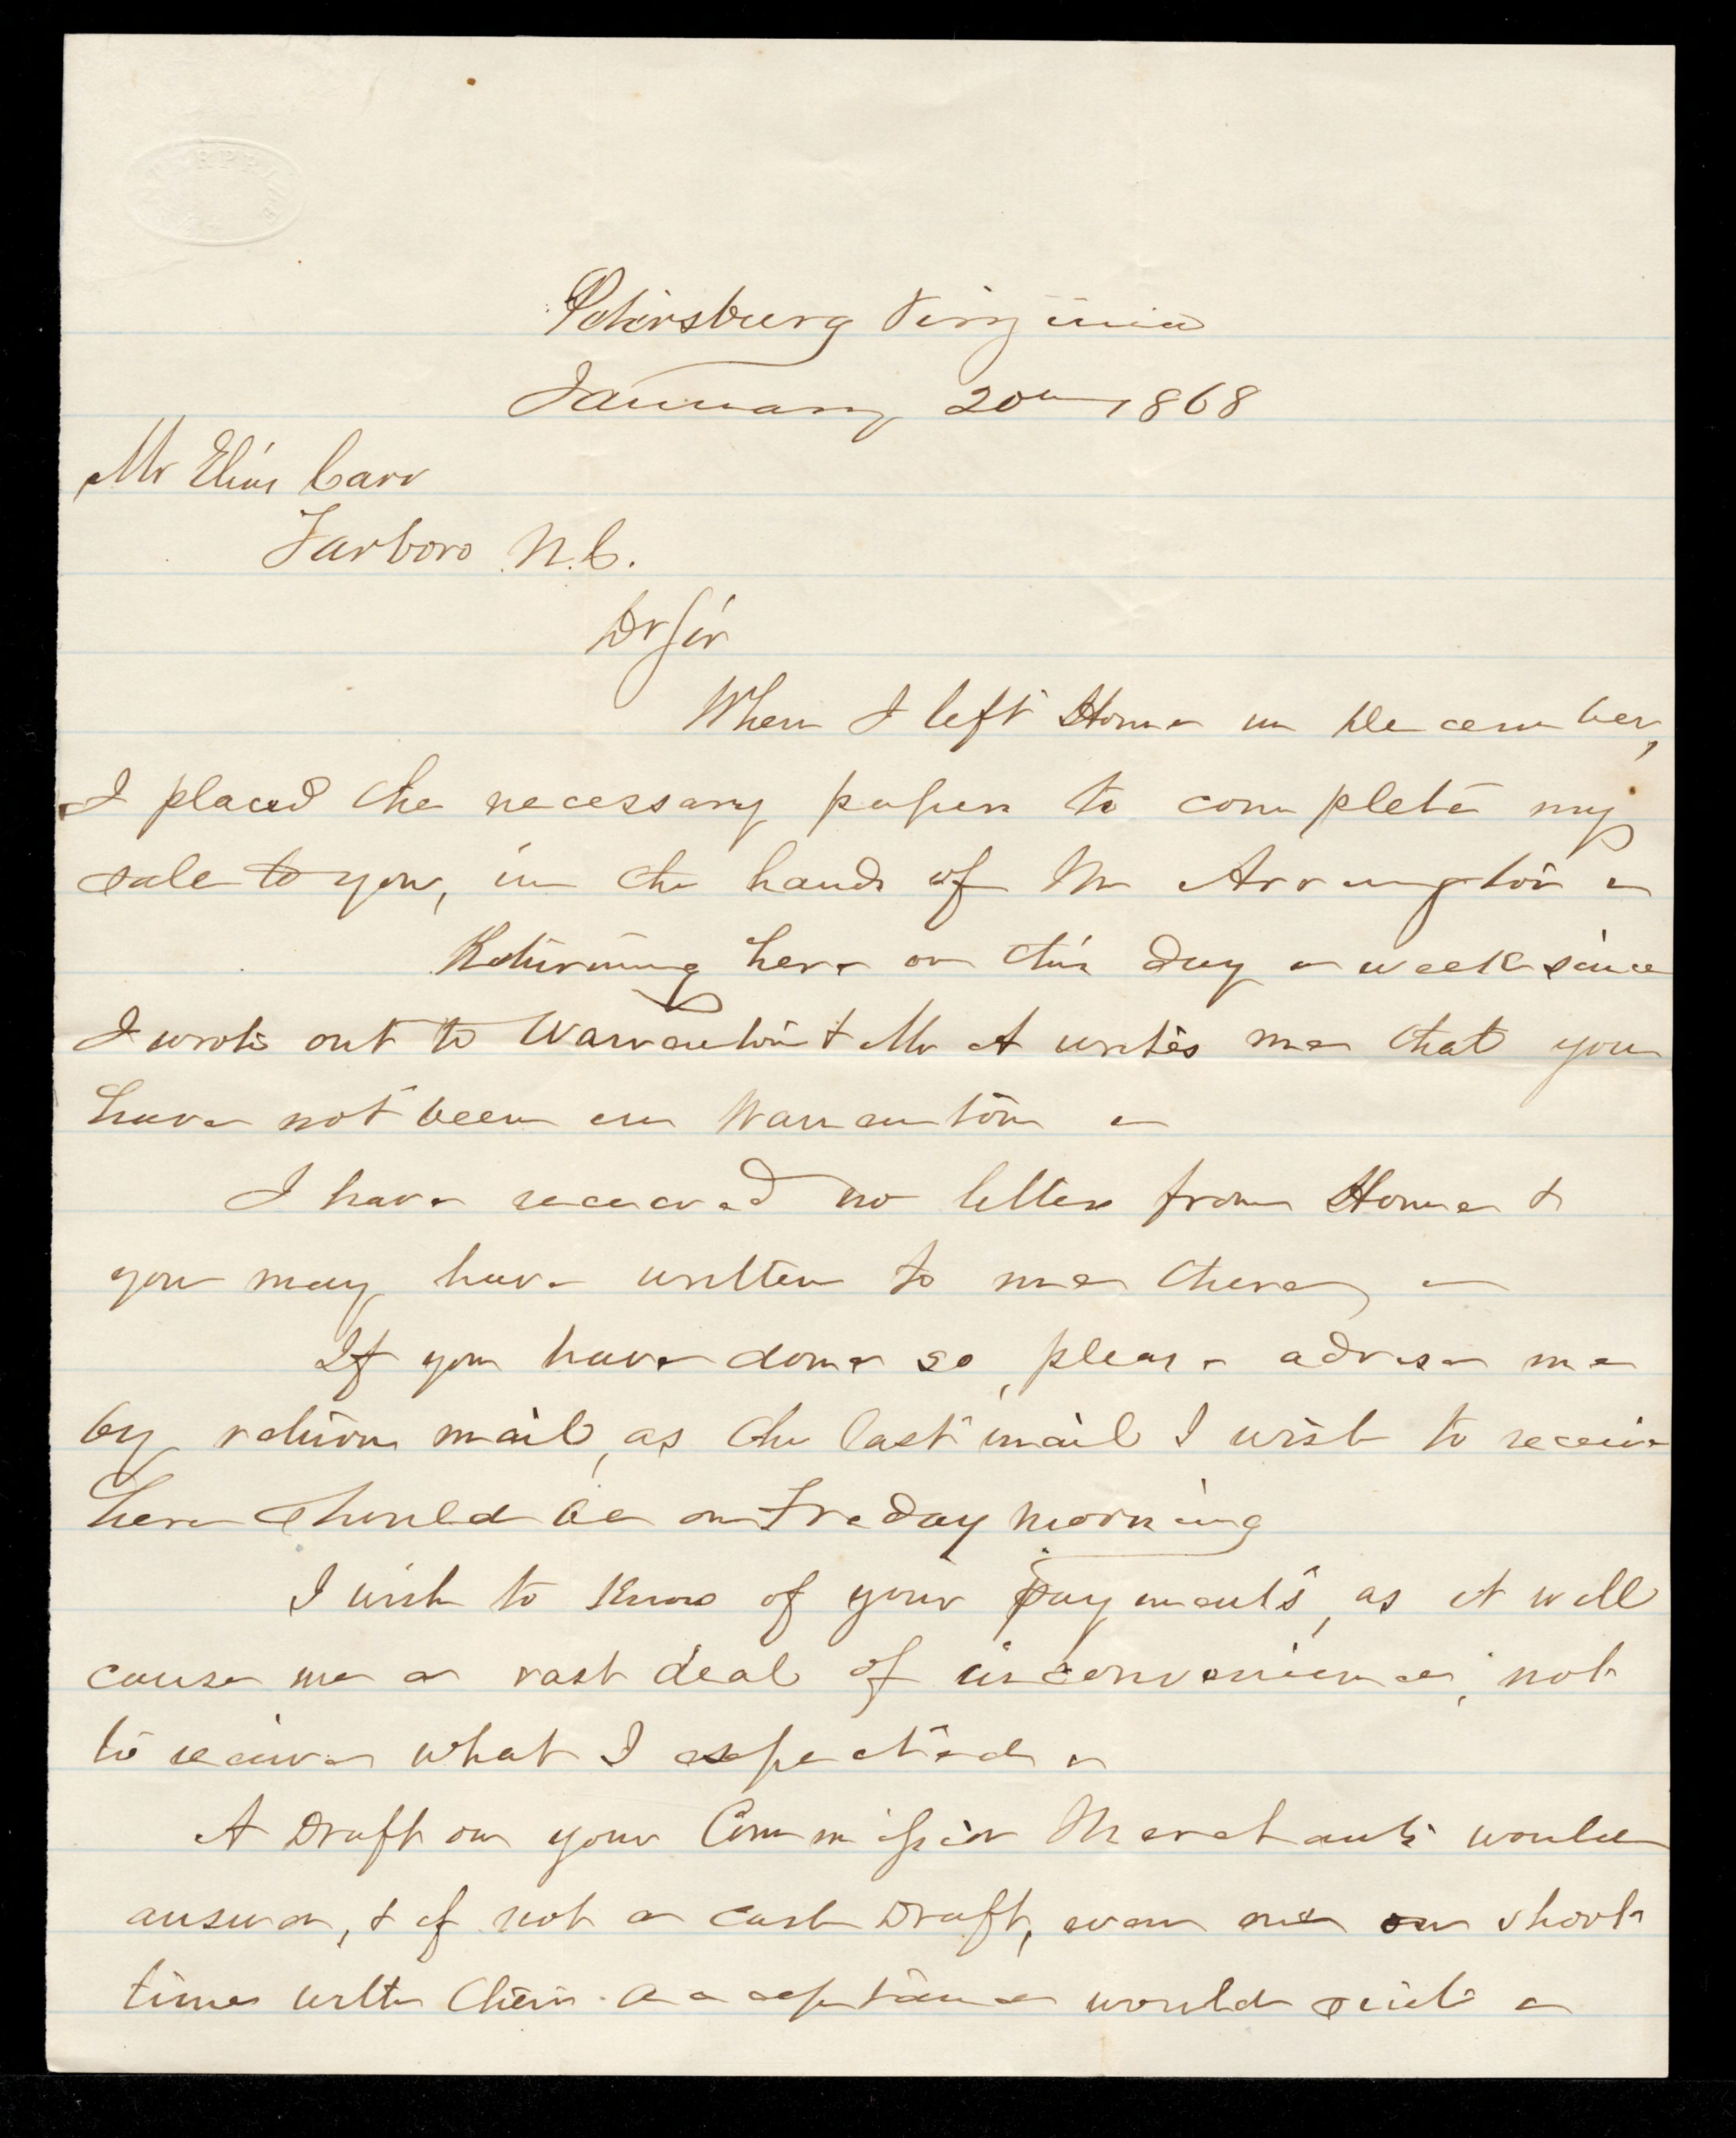 Petersburg Virginia
January 20th 1868
Mr Elias Carr
Tarboro N.C.
Dr Sir
When I left Home in December,
I placed the necessary papers to complete my
sale to you, in the hands of Mr Arrington –
Returning here on this day a week since
I wrote out to Warrenton & Mr A writes me that you
have not been in Warrenton –
I have received no letters from Home &
you may have written to me there, –
If you have done so, please advise me
by return mail, as the last mail I wish to receive
here should be on Friday morning
I wish to know of your payments, as it will
cause me a vast deal of inconvenience, not
to receive what I expected –
A Draft on your Commission Merchants would
answer, & if not a cash Draft, even one on short
time with their acceptance would suit –